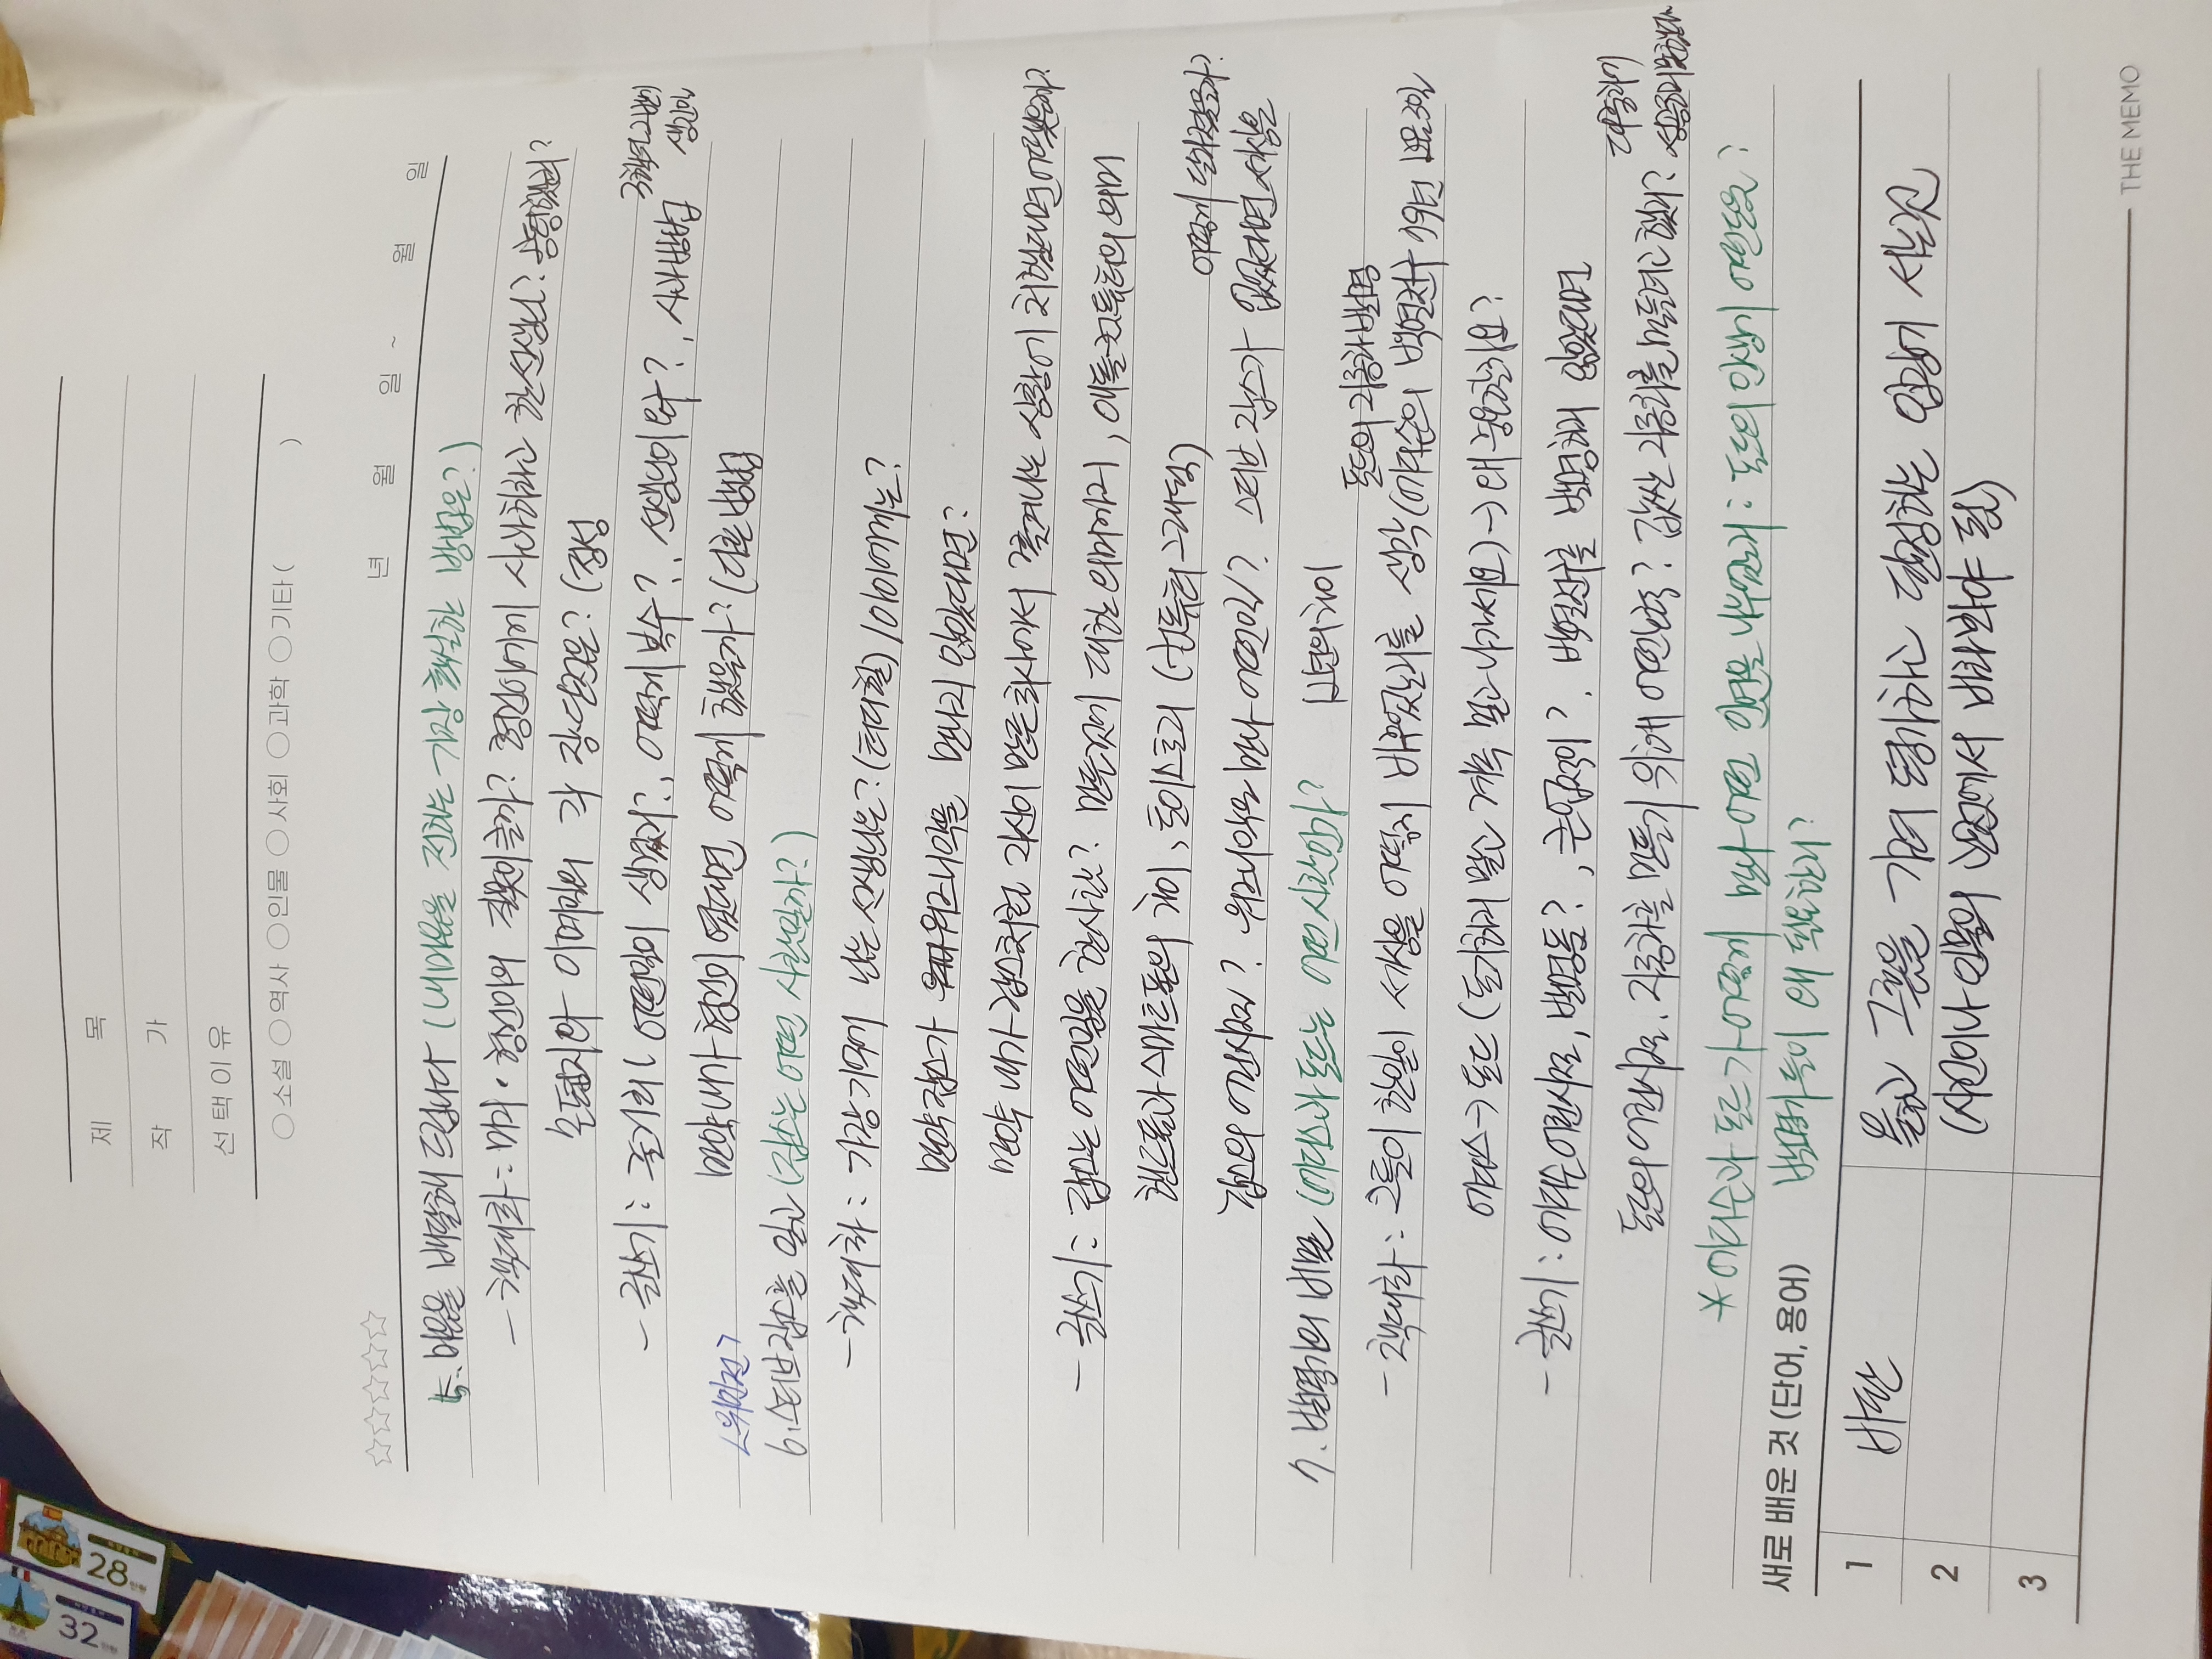 32
28
제 목
작 가
선택이유
○소설 ○역사 ○인물 ○사회 ○과학 ○기타 ( )
☆☆☆☆☆ 년 월 일 ~ 월 일
5. 마음을 배달해 드립니다 (내마음을 전하는 가장 확실한 방법은?)
- 책대화 : 미리·형건이의 잘못이 클까? 형건이에게 사과하라고 한 선생님? 공평했니?
손편지와 이메일의 각 장·단점은? (정성
- 글쓰기 : 줄거리 ( 어떤일이 생겼지?, 어떻게 복수?, 선생님이 요구?, 사과방법
3학년 그반에 생긴일
만약 내가 형건이 였다면 어떻게 했을까? (다른 방법
<위인전>
6. 스티브잡스를 읽고 (잡스는 어떤 사람일까?)
- 책대화 : 가장 기억에 남는 선생님은? (테디힐) / 아이에게는?
만약 잡스가 워즈니악을 만나지 않았다면?
만약 내가 잡스처럼 자신이 만든회사에서 쫓겨나는 상황에 처했다면 어땠을까?
- 글쓰기 : 잡스는 어떤일을 한사람? 만든것에 대한 의미까지, 애플컴퓨터의 의미
핸드폰과 스마트폰의 차이, 토이스토리 (컴퓨터 그래픽)
어떻게 달라졌을까?
잡스의 어린시절? 워즈니악을 만나 어떤일? 스티브 잡스가 없었다면 세상은
7. 발명가의 비밀 (에디슨과 포드는 어떤 사람인가?
포드의 자동차 발명
- 책대화 : 그들이 한일이 세상을 어떻게 바꾸었는지를 생각 (에디슨의 백열전구
에디슨 → 포드 (포기하지 말고 계속 밀고 나가세요) → 왜 중요할까요?
- 글쓰기 : 에디슨 어린시절, 발명품?, 큰업적이?, 백열전구를 발명하지 않았다면
포드의 어린시절, 자동차를 만들기 위해 어떤노력? 값싼 자동차를 만들려고 했지?
* 에디슨과 포드가 어떻게 만나 어떤 인연을 나누었는지 : 포드의 인생에 어떤도움?
발명가들이 왜 필요한지?
새로 배운 것 (단어, 용어)
1 비판 옳고 그름을 가려 평가하고 판정하는 입장에 서는것
2 (사건이나 인물의 관점에서 바라봐야 됨)
3
THE MEMO